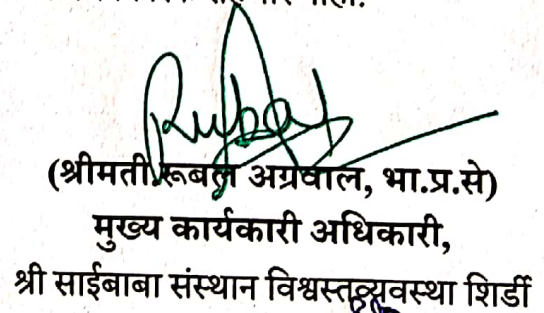 Rubal
(श्रीमती रूबल अग्रवाल, भा.प्र.से)
मुख्य कार्यकारी अधिकारी,
श्री साईबाबा संस्थान विश्वस्तव्यवस्था शिर्डी